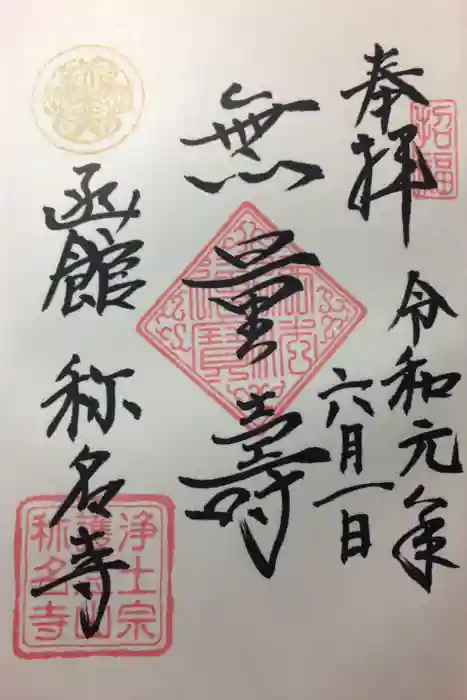 奉拝
招福
令和元年
六月一日
無量壽
函館 称名寺
浄土宗
護念山
称名寺